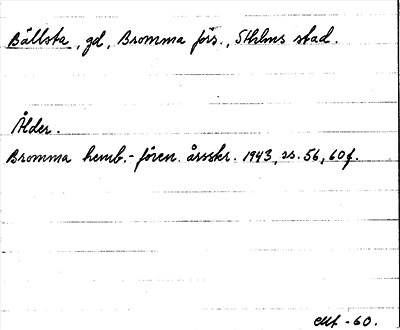 Bällsta, gd, Bromma förs., Sthlms stad.
Ålder.
Bromma hemb.-fören. årsskr. 1943, ss. 56, 60f.
-60.